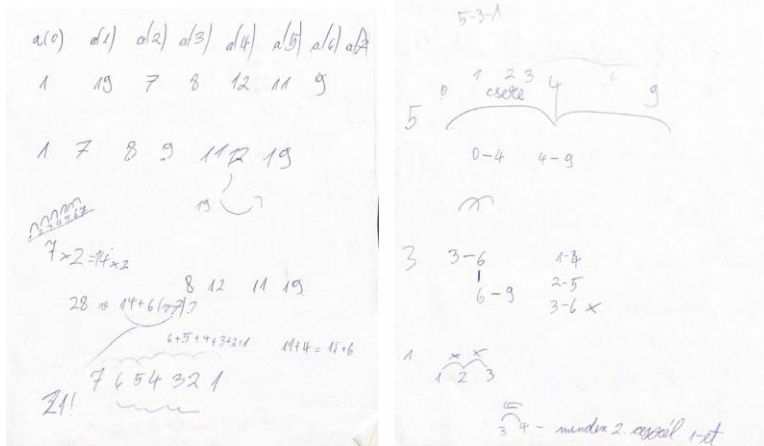 a(0) a(1) a(2) a(3) a(4) a(5) a(6) a(7)
1 19 7 8 12 11 9
1 7 8 9 11 12 19
19
7×2=14×2
8 12 11 19
28 14+6
6+5+4+3+2+1
7 6 5 4 3 2 1
21!
5-3-1
1 2 3 4 6
0 csere 9
5
0-4 4-9
3 3-6 1-4
2-5
6-9 3-6 x
1 x x
1 2 3
3 4 - minden 2. 1-et